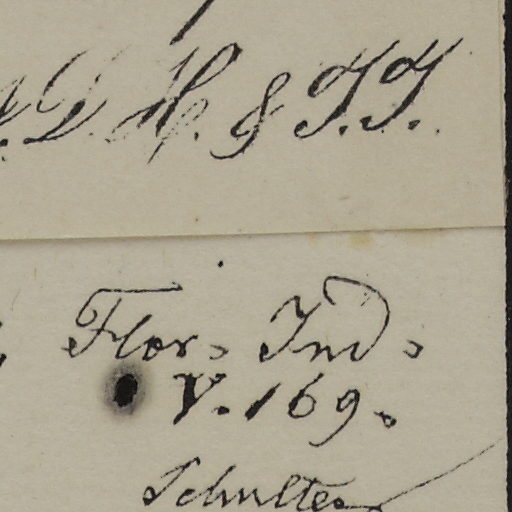 J.D.H. & T.T.
Flor. Ind.
V. 169.
Schultes